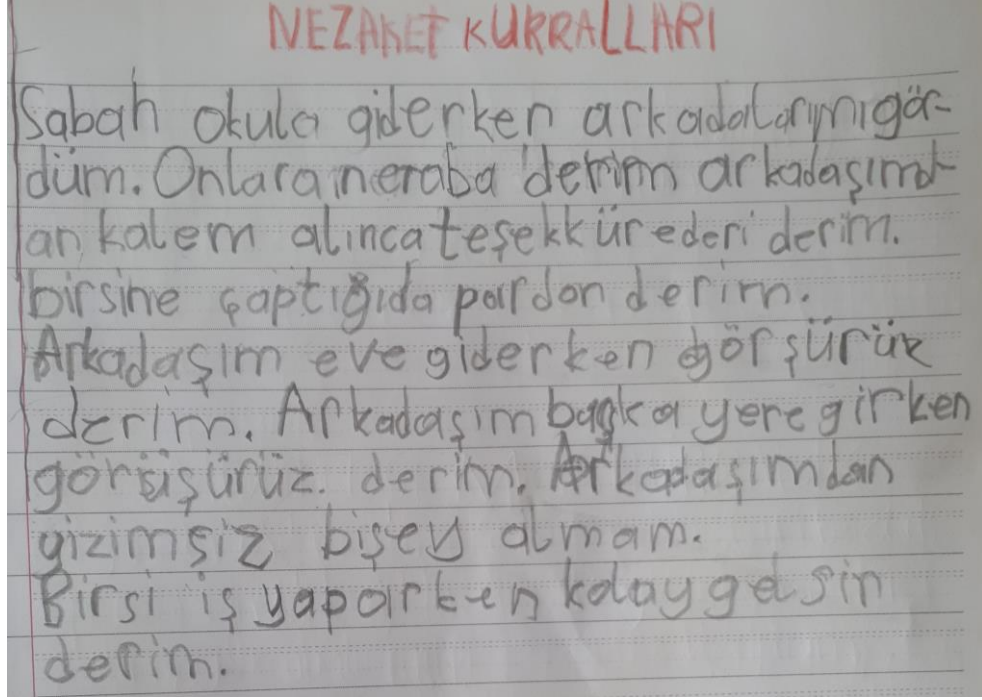 NEZAKET KURRALLARI
Sabah okula giderken arkadalarımı gör-
düm. Onlara meraba derim arkadaşımd-
an kalem alınca teşekkür ederi derim.
birsine çaptığıda pardon derim.
Arkadaşım eve giderken görşürük
derim. Arkadaşım başka yere girken
görüşürüz. derim. Arkadaşımdan
yizimsiz bişey almam.
Birsi iş yaparken kolay gelsin
derim.